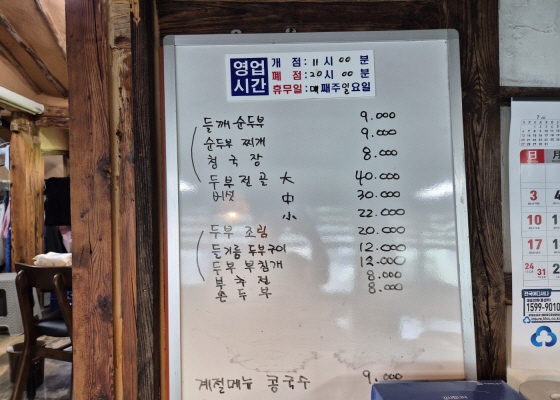 영업시간
개 점 : 11시 00분
폐 점 : 20시 00분
휴무일 : 매째주 일요일
들깨 순두부 9.000
순두부 찌개 9.000
청국장 8.000
두부전골 大 40.000
버섯 中 30.000
小 22.000
두부 조림 20.000
들기름 두부구이 12.000
두부 부침개 12.000
부추전 8.000
온두부 8.000
계절메뉴 콩국수 9.000
7
日 月
3 4
10 11
17 18
24/31 25
1599-9010